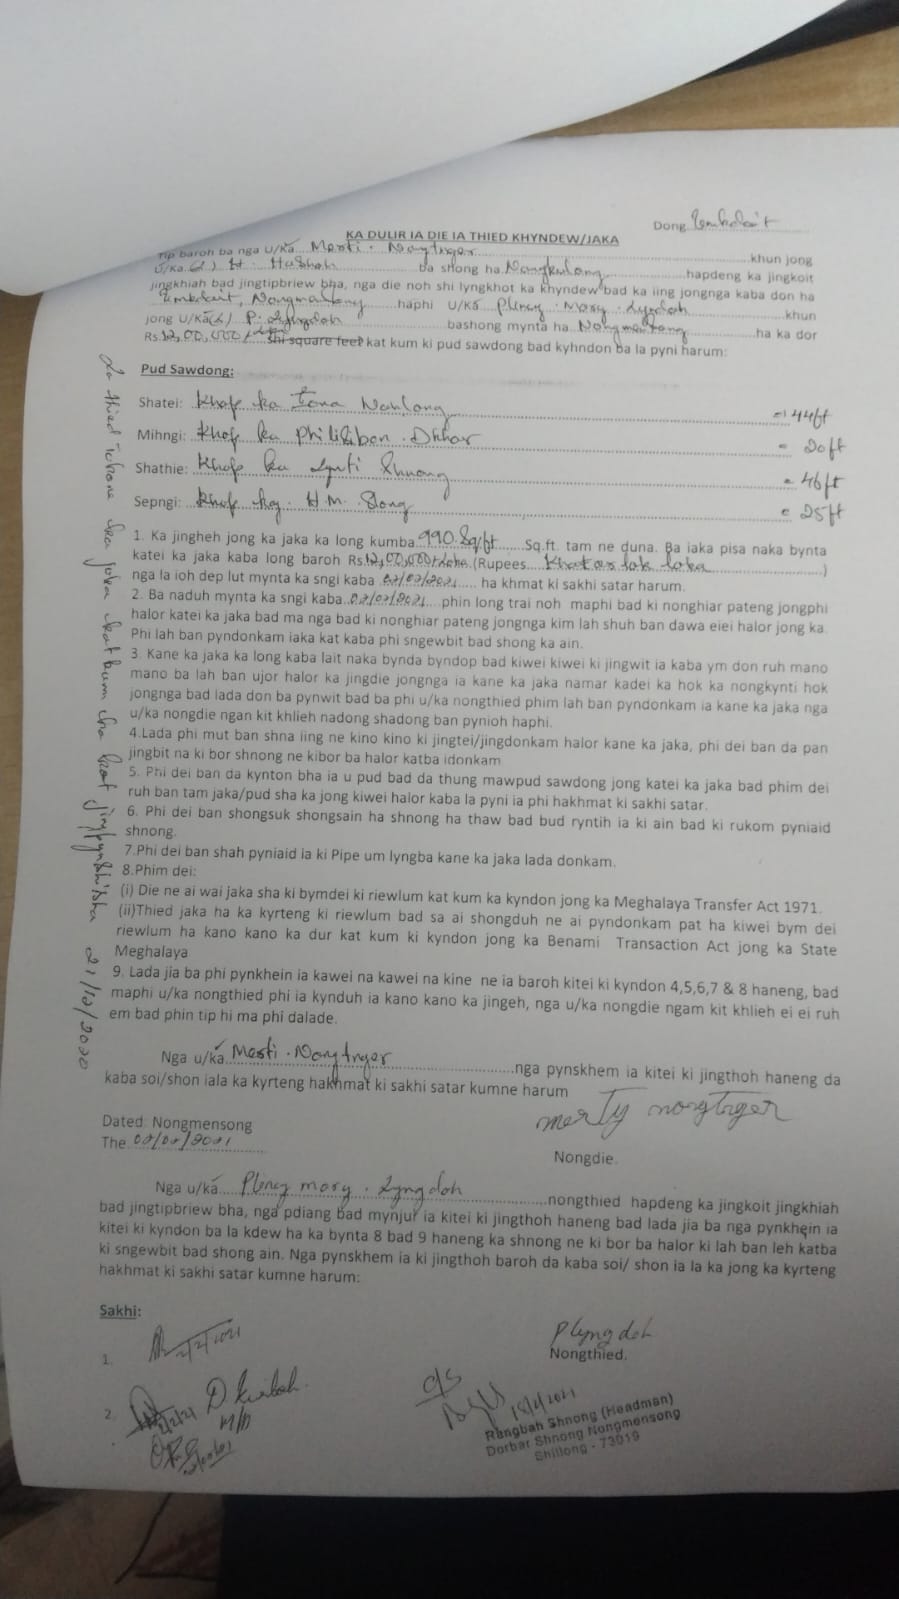 Dong Umkdait
KA DULIR IA DIE IA THIED KHYNDEW/JAKA
Tip baroh ba nga U/Ka Mesti. Nongtnger khun jong
U/Ka (L) H. ba shong ha hapdeng ka jingkoit
jingkhiah bad jingtipbriew bha, nga die noh shi lyngkhot ka khyndew bad ka iing jongnga kaba don ha
Umkdait, Nongmensong haphi U/Ka Plency. Mary. Lyngdoh khun
jong U/Ka (L) P. Lyngdoh bashong mynta ha Nongmensong ha ka dor
Rs.12,00,000/- shi square feet kat kum ki pud sawdong bad kyhndon ba la pyni harum:
Pud Sawdong:
Shatei: Khap ka Nahlang = 44ft
Mihngi: Khap ka Philisiban. Dkhar = 20ft
Shathie: Khap ka Lynti Shnong = 46ft
Sepngi: Khap H.M. = 25ft
1. Ka jingheh jong ka jaka ka long kumba 990.Sq/ft Sq.ft. tam ne duna. Ba iaka pisa naka bynta
katei ka jaka kaba long baroh Rs.12,00,000/- (Rupees Khatar lak )
nga la ioh dep lut mynta ka sngi kaba 02/02/2021 ha khmat ki sakhi satar harum.
2. Ba naduh mynta ka sngi kaba 02/02/2021 phin long trai noh maphi bad ki nonghiar pateng jongphi
halor katei ka jaka bad ma nga bad ki nonghiar pateng jongnga kim lah shuh ban dawa eiei halor jong ka.
Phi lah ban pyndonkam iaka kat kaba phi sngewbit bad shong ka ain.
3. Kane ka jaka ka long kaba lait naka bynda byndop bad kiwei kiwei ki jingwit ia kaba ym don ruh mano
mano ba lah ban ujor halor ka jingdie jongnga ia kane ka jaka namar kadei ka hok ka nongkynti hok
jongnga bad lada don ba pynwit bad ba phi u/ka nongthied phim lah ban pyndonkam ia kane ka jaka nga
u/ka nongdie ngan kit khlieh nadong shadong ban pynioh haphi.
4.Lada phi mut ban shna iing ne kino kino ki jingtei/jingdonkam halor kane ka jaka, phi dei ban da pan
jingbit na ki bor shnong ne kibor ba halor katba idonkam
5. Phi dei ban da kynton bha ia u pud bad da thung mawpud sawdong jong katei ka jaka bad phim dei
ruh ban tam jaka/pud sha ka jong kiwei halor kaba la pyni ia phi hakhmat ki sakhi satar.
6. Phi dei ban shongsuk shongsain ha shnong ha thaw bad bud ryntih ia ki ain bad ki rukom pyniaid
shnong.
7.Phi dei ban shah pyniaid ia ki Pipe um lyngba kane ka jaka lada donkam.
8.Phim dei:
(i) Die ne ai wai jaka sha ki bymdei ki riewlum kat kum ka kyndon jong ka Meghalaya Transfer Act 1971.
(ii)Thied jaka ha ka kyrteng ki riewlum bad sa ai shongduh ne ai pyndonkam pat ha kiwei bym dei
riewlum ha kano kano ka dur kat kum ki kyndon jong ka Benami Transaction Act jong ka State
Meghalaya
9. Lada jia ba phi pynkhein ia kawei na kawei na kine ne ia baroh kitei ki kyndon 4,5,6,7 & 8 haneng, bad
maphi u/ka nongthied phi ia kynduh ia kano kano ka jingeh, nga u/ka nongdie ngam kit khlieh ei ei ruh
em bad phin tip hi ma phi dalade.
Nga u/ka Mesti. Nongtnger nga pynskhem ia kitei ki jingthoh haneng da
kaba soi/shon iala ka kyrteng hakhmat ki sakhi satar kumne harum
merty nongtnger
Dated: Nongmensong
The 02/02/2021
Nongdie.
Nga u/ka Plency mary. Lyngdoh nongthied hapdeng ka jingkoit jingkhiah
bad jingtipbriew bha, nga pdiang bad mynjur ia kitei ki jingthoh haneng bad lada jia ba nga pynkhein ia
kitei ki kyndon ba la kdew ha ka bynta 8 bad 9 haneng ka shnong ne ki bor ba halor ki lah ban leh katba
ki sngewbit bad shong ain. Nga pynskhem ia ki jingthoh baroh da kaba soi/ shon ia la ka jong ka kyrteng
hakhmat ki sakhi satar kumne harum:
Sakhi:
Plyngdoh
Nongthied.
1. 2/2/2021
2. 2/2/21
c/s
15/4/2021
Rangbah Shnong (Headman)
Dorbar Shnong Nongmensong
Shillong - 73019
La thied ka jaka katkum ka kot jingpynshisha 21/12/2020